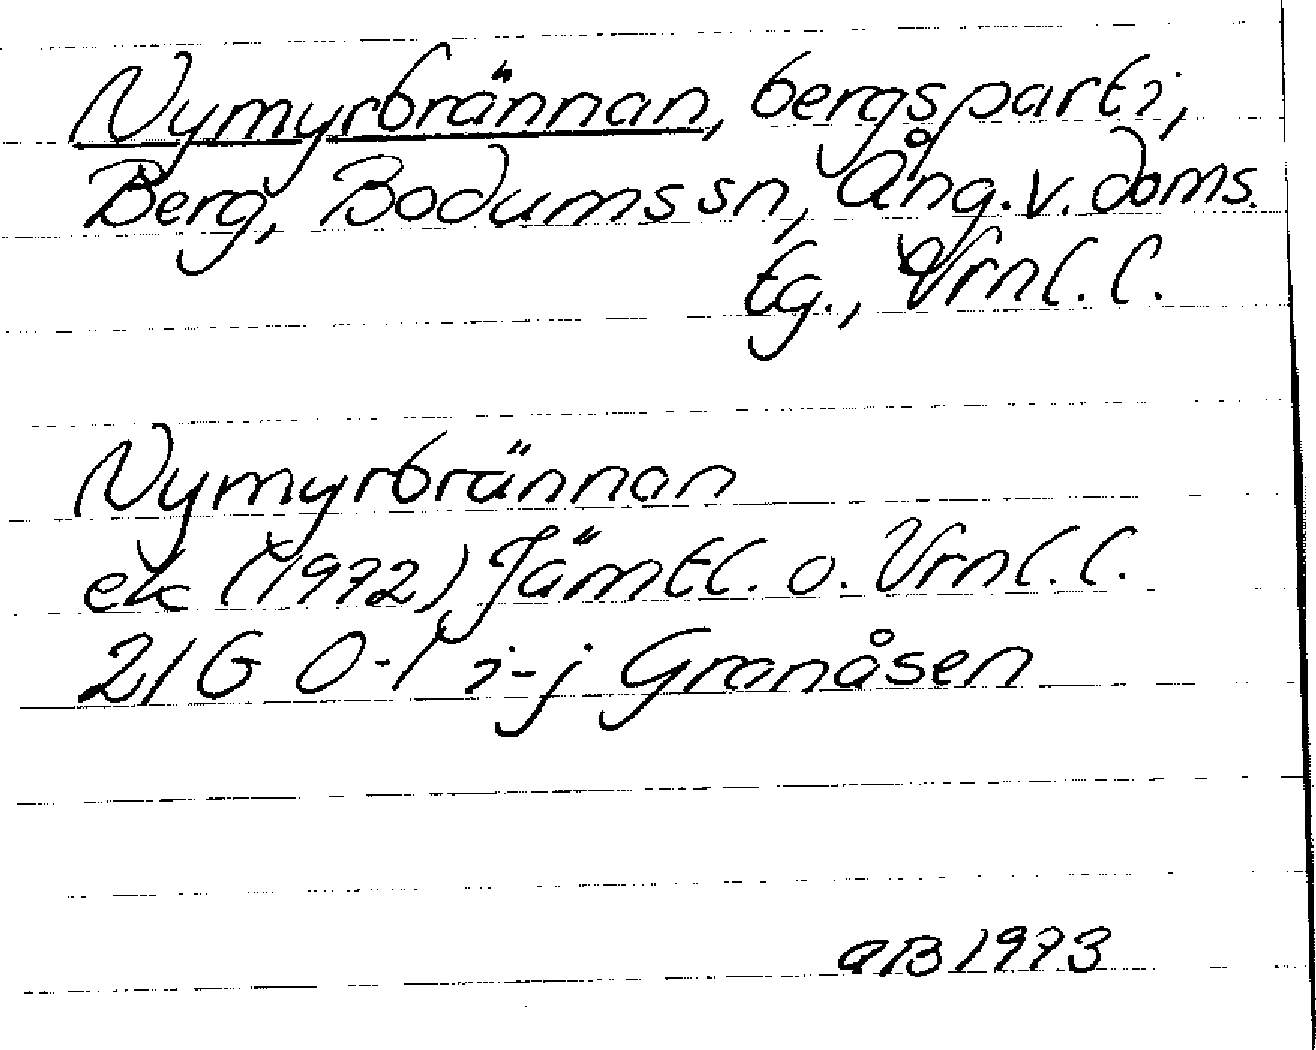 Nymyrbrännan, bergsparti,
Berg, Bodums sn, Ång. v. doms.
tg., Vrnl. l.
Nymyrbrännan
ek (1972) Jämtl. o. Vrnl. l.
21G 0-1 i-j Granåsen
aB 1973